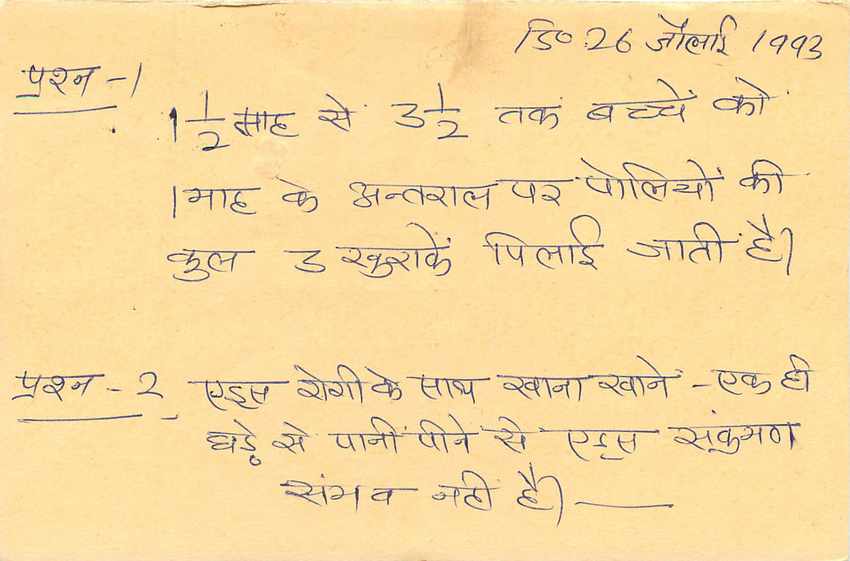 दि० 26 जौलाई 1993
प्रश्न -1
1 1/2 माह से 3 1/2 तक बच्चें को
1 माह के अन्तराल पर पोलियों की
कुल 3 खुराकें पिलाई जाती है।
प्रश्न - 2 एड्स रोगी के साथ खाना खाने - एक ही
घड़े से पानी पीने से एड्स संक्रमण
संभव नहीं है। —